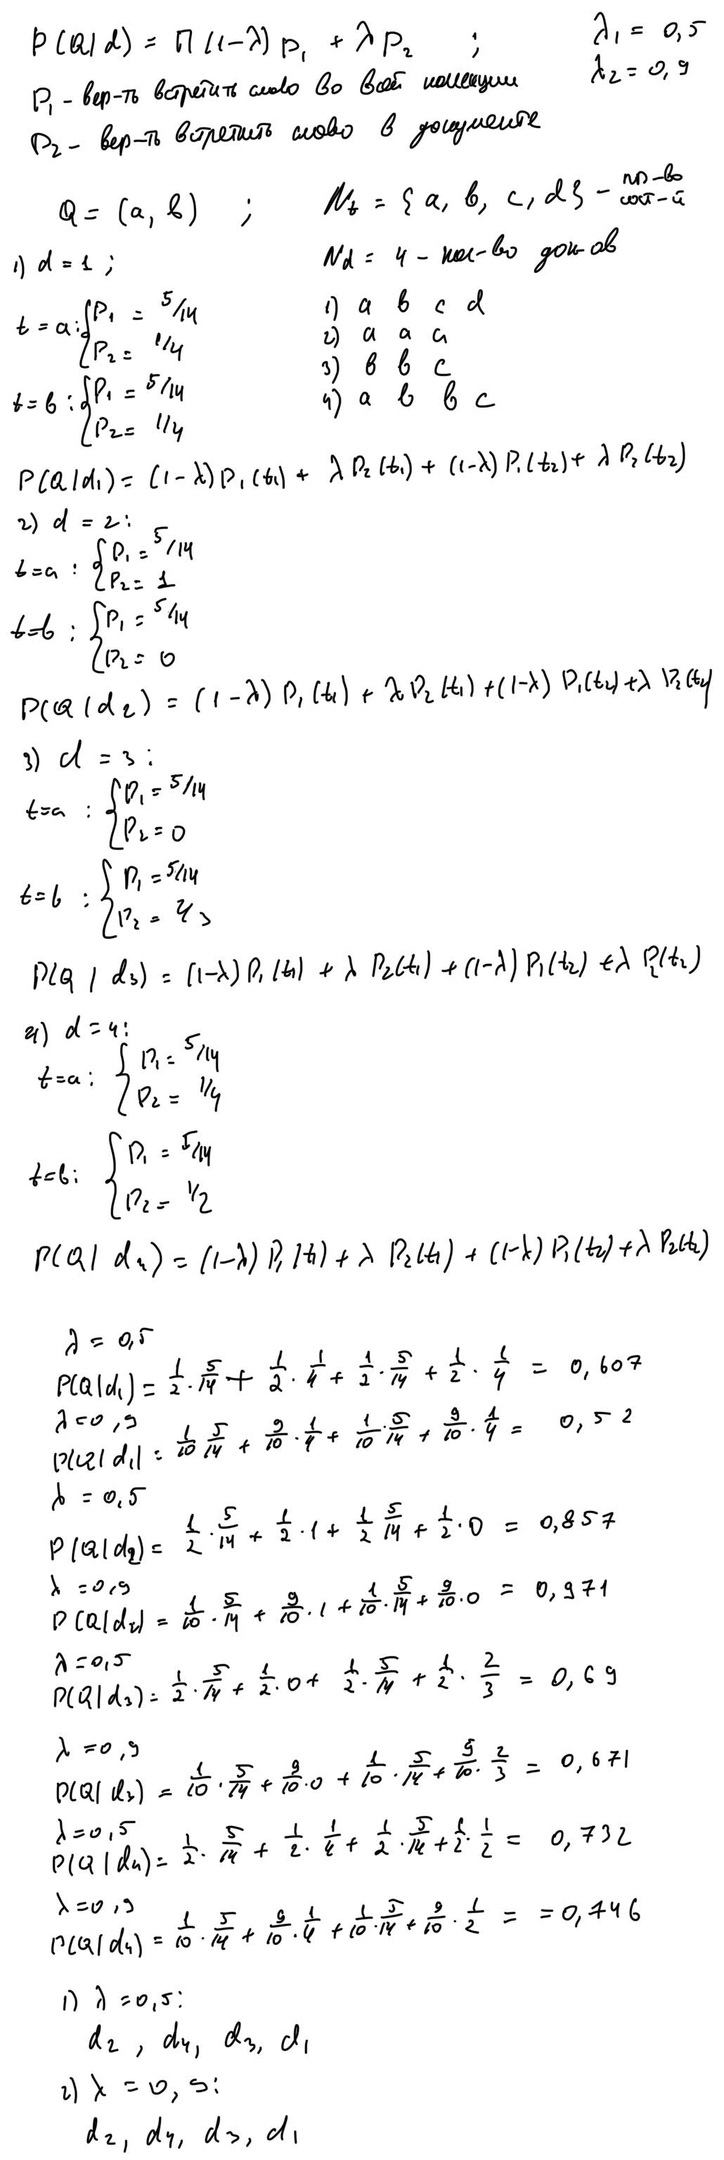 P(Q/d) = П (1-λ) p₁ + λ p₂ ; λ₁ = 0,5
λ₂ = 0,9
P₁ - вер-ть встретить слово во всей коллекции
P₂ - вер-ть встретить слово в документе
Q = (a, b) ; Nt = {a, b, c, d} -
1) d = 1 ; Nd = 4 - кол-во док-ов
t = a: {P₁ = 5/14 1) a b c d
P₂ = 1/4 2) a a a
t = b : {P₁ = 5/14 3) b b c
P₂ = 1/4 4) a b b c
P(Q/d₁) = (1-λ) P₁(t₁) + λ P₂(t₁) + (1-λ) P₁(t₂) + λ P₂(t₂)
2) d = 2:
t=a : {P₁ = 5/14
P₂ = 1
t=b : {P₁ = 5/14
P₂ = 0
P(Q/d₂) = (1-λ) P₁(t₁) + λ P₂(t₁) + (1-λ) P₁(t₂) + λ P₂(t₂)
3) d = 3 :
t=a : {P₁ = 5/14
P₂ = 0
t=b : {P₁ = 5/14
P₂ = 2/3
P(Q/d₃) = (1-λ) P₁(t₁) + λ P₂(t₁) + (1-λ) P₁(t₂) + λ P₂(t₂)
4) d = 4:
t=a : {P₁ = 5/14
P₂ = 1/4
t=b: {P₁ = 5/14
P₂ = 1/2
P(Q/d₄) = (1-λ) P₁(t₁) + λ P₂(t₁) + (1-λ) P₁(t₂) + λ P₂(t₂)
λ = 0,5
P(Q/d₁) = 1/2 · 5/14 + 1/2 · 1/4 + 1/2 · 5/14 + 1/2 · 1/4 = 0,607
λ = 0,9
P(Q/d₁) = 1/10 5/14 + 9/10 · 1/4 + 1/10 · 5/14 + 9/10 · 1/4 = 0,52
λ = 0,5
P(Q/d₂) = 1/2 · 5/14 + 1/2 · 1 + 1/2 5/14 + 1/2 · 0 = 0,857
λ = 0,9
P(Q/d₂) = 1/10 · 5/14 + 9/10 · 1 + 1/10 · 5/14 + 9/10 · 0 = 0,971
λ = 0,5
P(Q/d₃) = 1/2 · 5/14 + 1/2 · 0 + 1/2 · 5/14 + 1/2 · 2/3 = 0,69
λ = 0,9
P(Q/d₃) = 1/10 · 5/14 + 9/10 · 0 + 1/10 · 5/14 + 9/10 · 2/3 = 0,671
λ = 0,5
P(Q/d₄) = 1/2 · 5/14 + 1/2 · 1/4 + 1/2 · 5/14 + 1/2 · 1/2 = 0,732
λ = 0,9
P(Q/d₄) = 1/10 · 5/14 + 9/10 · 1/4 + 1/10 · 5/14 + 9/10 · 1/2 = = 0,746
1) λ = 0,5:
d₂ , d₄, d₃, d₁
2) λ = 0,9:
d₂, d₄, d₃, d₁